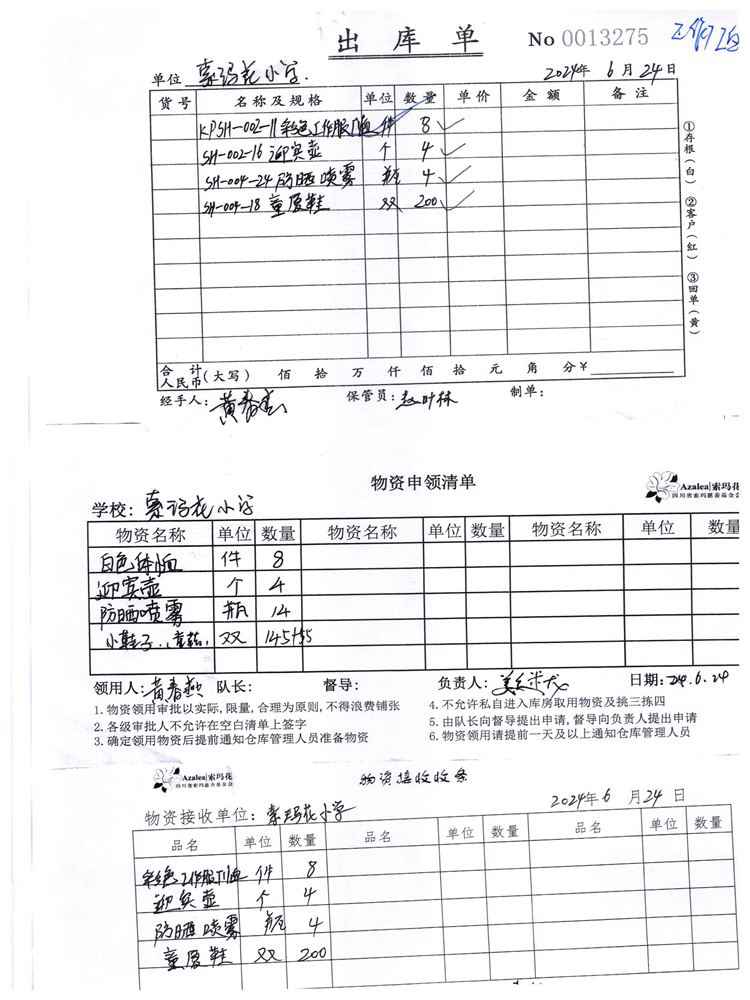 出库单 No 0013275
单位 索玛花小学. 2024年 6 月 24日
货号 名称及规格 单位 数量 单价 金额 备注
KPSH-002-11 彩色工作服T恤 件 8
SH-002-16 迎宾壶 个 4
SH-004-24 防晒喷雾 瓶 4
SH-004-18 童厚鞋 双 200
①存根(白) ②客户(红) ③回单(黄)
合计人民币(大写) 佰 拾 万 仟 佰 拾 元 角 分 ¥
经手人: 黄春燕 保管员: 赵叶林 制单:
物资申领清单
Azalea|索玛花
四川省索玛慈善基金会
学校: 索玛花小学
物资名称 单位 数量 物资名称 单位 数量 物资名称 单位 数量
白色体恤 件 8
迎宾壶 个 4
防晒喷雾 瓶 14
小鞋子 双 145+55
领用人: 黄春燕 队长: 督导: 负责人: 日期: 24.6.24
1.物资领用审批以实际,限量,合理为原则,不得浪费铺张
2.各级审批人不允许在空白清单上签字
3.确定领用物资后提前通知仓库管理人员准备物资
4.不允许私自进入库房取用物资及挑三拣四
5.由队长向督导提出申请,督导向负责人提出申请
6.物资领用请提前一天及以上通知仓库管理人员
Azalea|索玛花
四川省索玛慈善基金会
物资接收收条
物资接收单位: 索玛花小学 2024年 6 月 24 日
品名 单位 数量 品名 单位 数量 品名 单位 数量
彩色工作服T恤 件 8
迎宾壶 个 4
防晒喷雾 瓶 4
童厚鞋 双 200